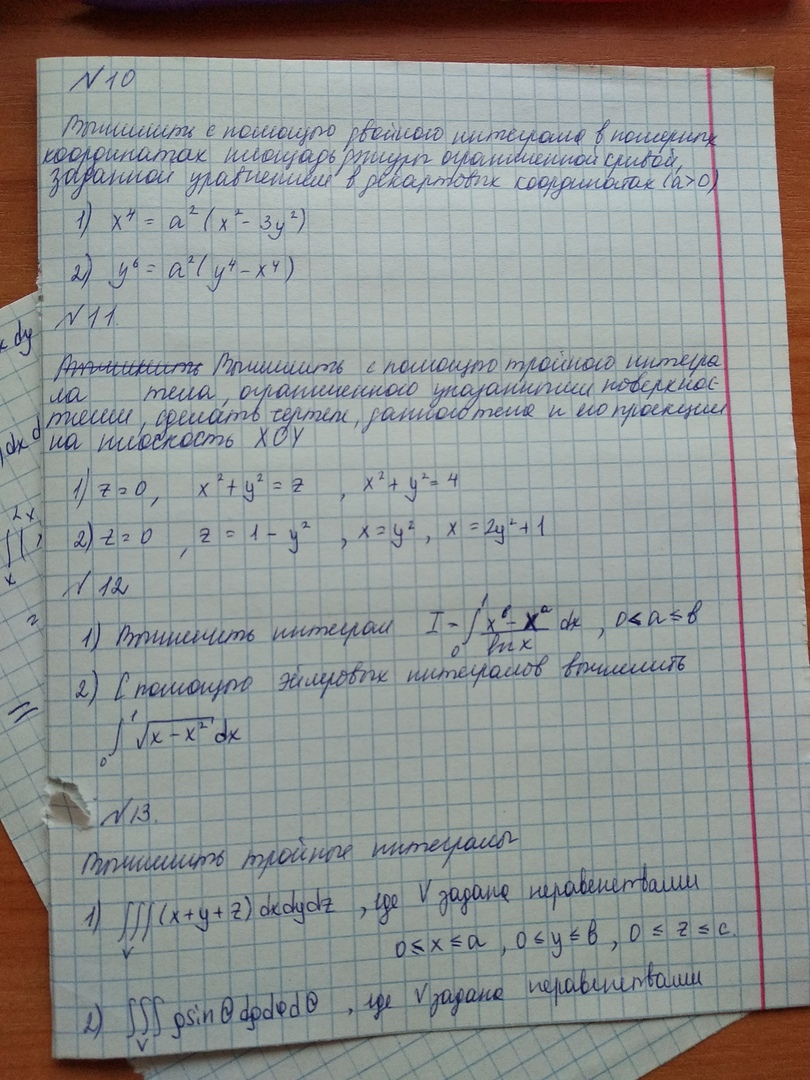 N10
Вычислить с помощью двойного интеграла в полярных
координатах площадь фигуры ограниченной кривой,
заданной уравнением в декартовых координатах (a>0)
1) x⁴ = a² (x² - 3y²)
2) y⁶ = a² (y⁴ - x⁴)
N11.
Вычислить с помощью тройного интегра
ла тела, ограниченного указанными поверхнос-
тями, сделать чертеж, данного тела и его проекции
на плоскость XOY
1) z=0, x²+y²=z , x²+y²=4
2) z=0 , z = 1-y² , x=y², x=2y²+1
N12
1) Вычислить интеграл I = ∫₀¹ (xᵇ - xᵃ)/ln x dx , 0<a≤b
2) С помощью эйлеровых интегралов вычислить
∫₀¹ √(x-x²) dx
N13.
Вычислить тройные интегралы
1) ∭_V (x+y+z) dxdydz , где V задана неравенствами
0≤x≤a , 0≤y≤b , 0≤z≤c.
2) ∭_V ρsinθdρdφdθ , где V задана неравенствами
x dy
dx d
2x
∫∫(
x
=